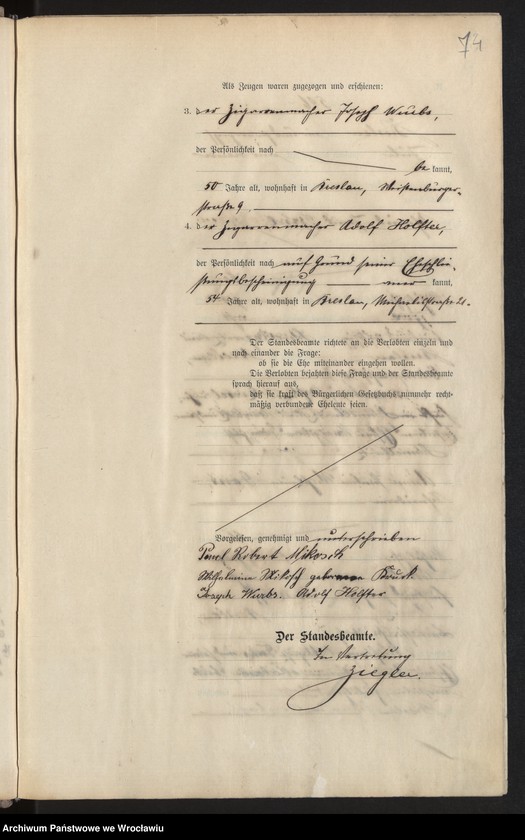 74
Als Zeugen waren zugezogen und erschienen:
3. der Zigarrenmacher Joseph Wurbs,
der Persönlichkeit nach
be kannt,
50 Jahre alt, wohnhaft in Breslau,
straße 9.
4. der Zigarrenmacher Adolf Holfter,
der Persönlichkeit nach auf Grund seiner Eheschlie-
ßungsbescheinigung kannt,
54 Jahre alt, wohnhaft in Breslau,
Der Standesbeamte richtete an die Verlobten einzeln und
nach einander die Frage:
ob sie die Ehe miteinander eingehen wollen.
Die Verlobten bejahten diese Frage und der Standesbeamte
sprach hierauf aus,
daß sie kraft des Bürgerlichen Gesetzbuchs nunmehr recht-
mäßig verbundene Eheleute seien.
Vorgelesen, genehmigt und unterschrieben
Paul Robert Mikosch
Wilhelmine Mikosch geborene
Joseph Wurbs. Adolf Holfter
Der Standesbeamte.
In Vertretung
Ziegler.
Archiwum Państwowe we Wrocławiu